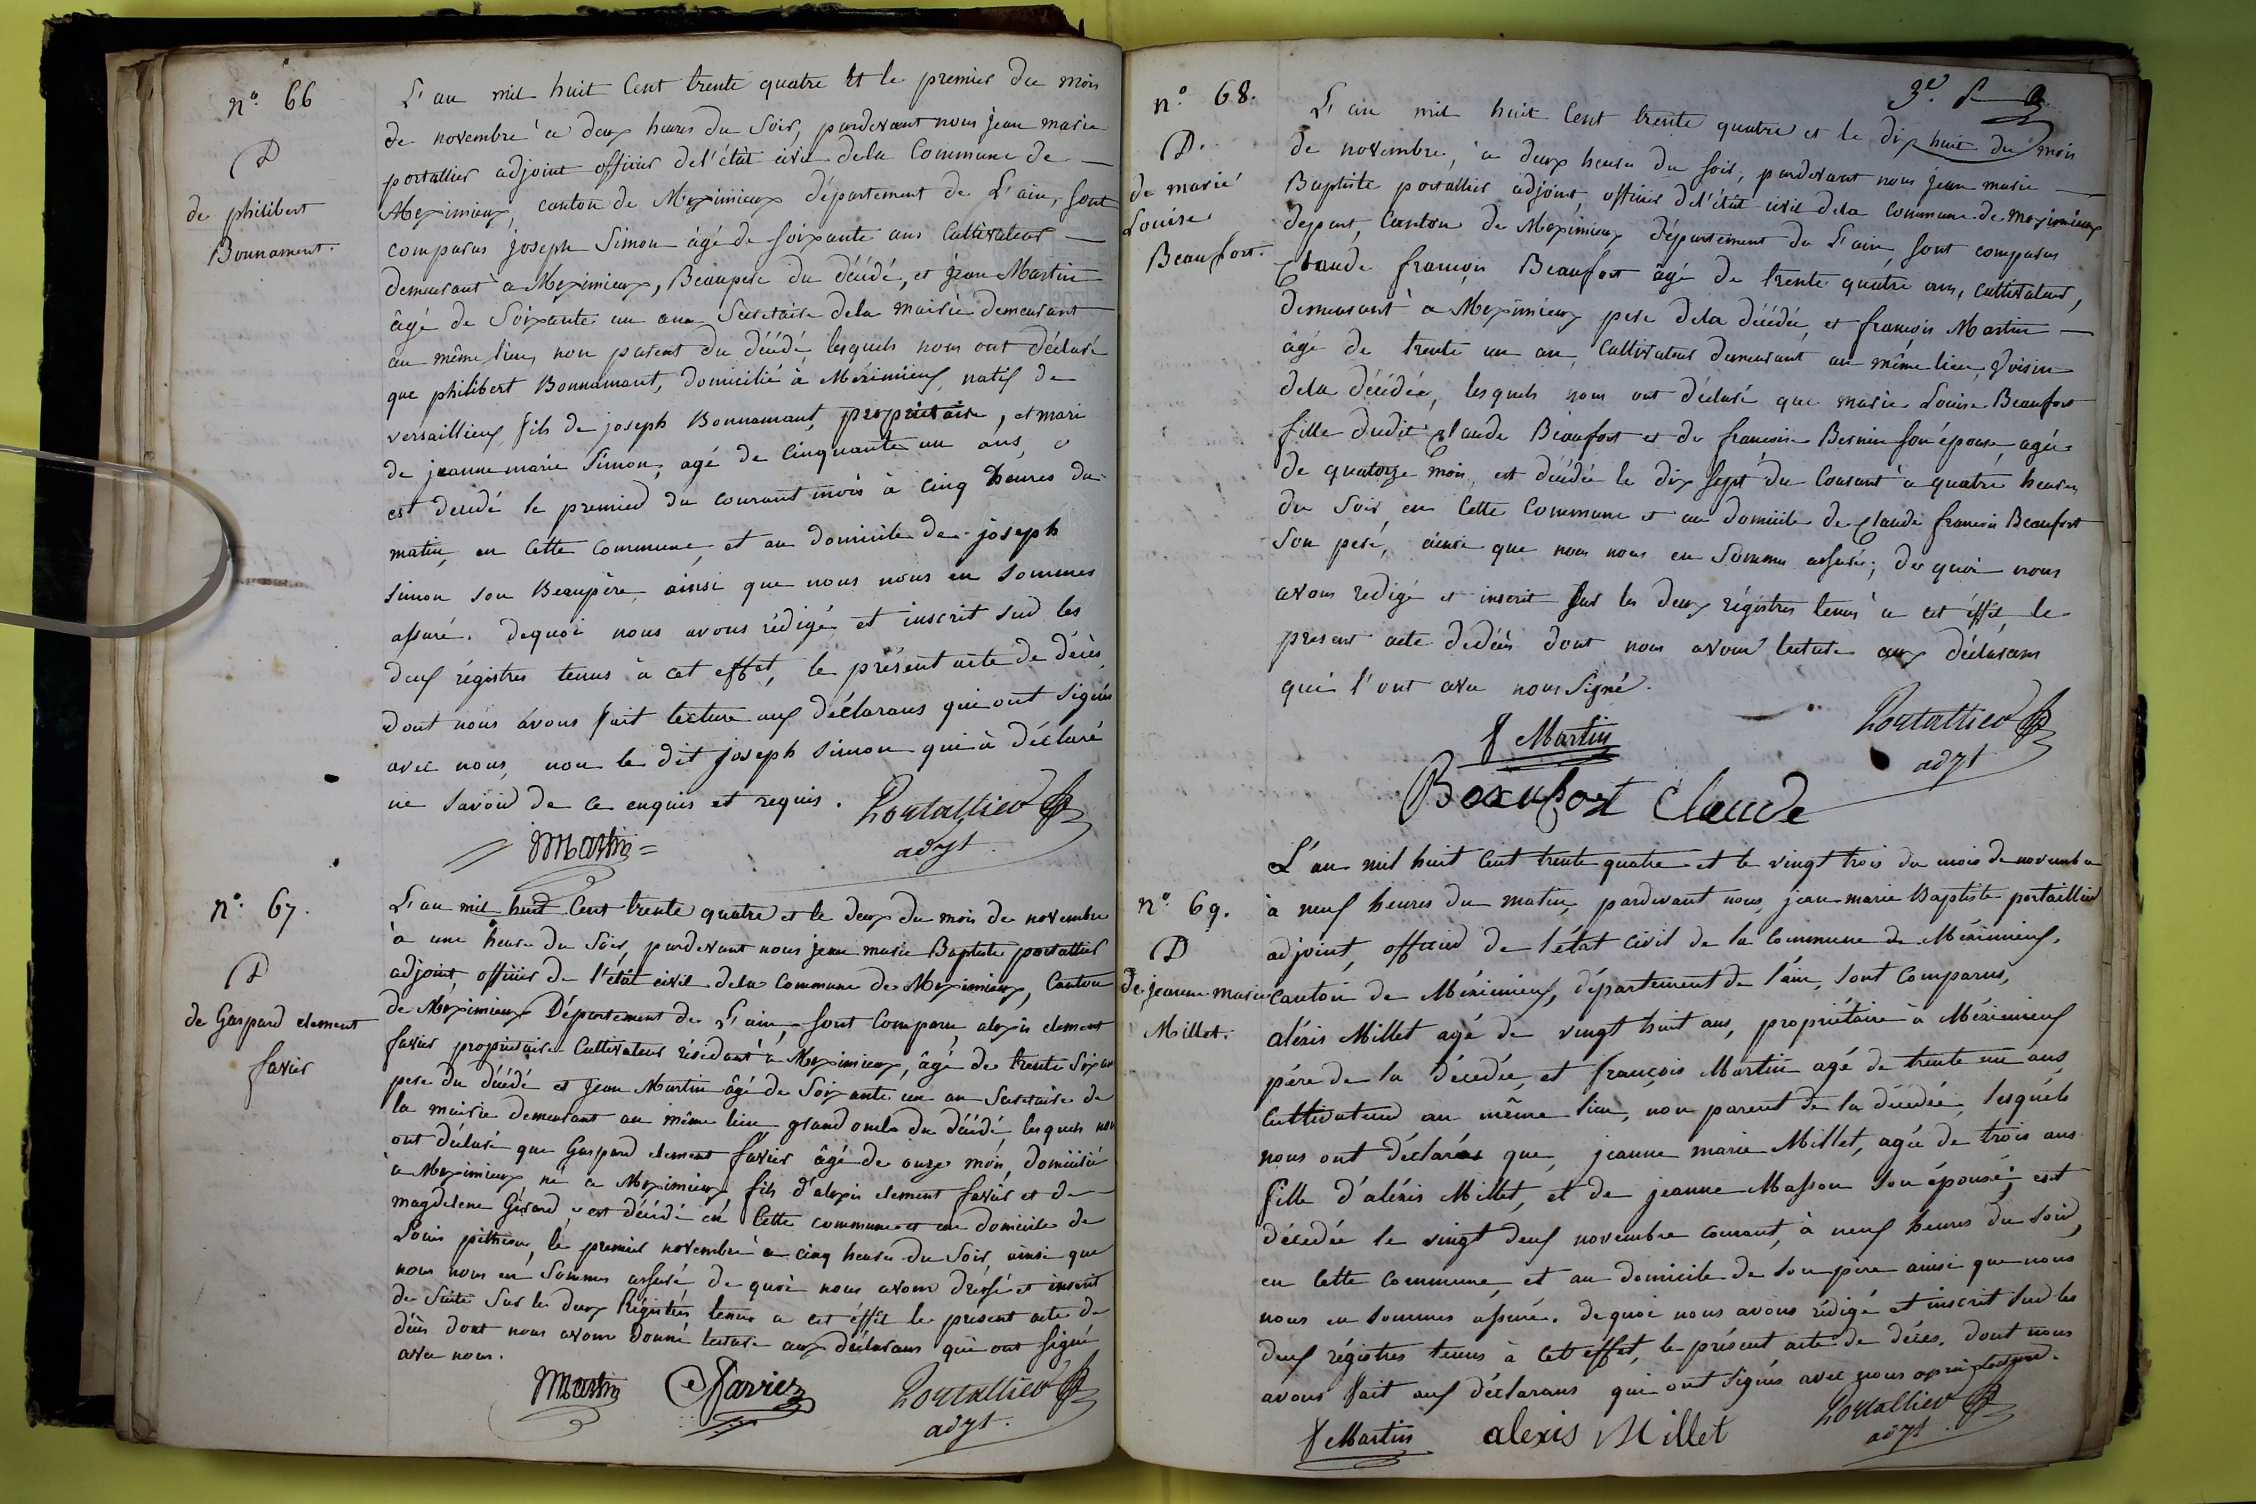 n.° 66
D
de philibert
Bonnament.
L'an mil huit Cent trente quatre et le premier du mois
de novembre a deux heures du Soir, pardevant nous jean marie
portallier adjoint officier de l'état civil dela Commune de
Meximieux, canton de Meximieux département de L'ain, sont
comparus joseph Simon âgé de soixante ans Cultivateur
demeurant a Meximieux, Beaupere du décédé, et jean Martin
âgé de Soixante un ans Secretaire dela mairie demeurant
au même lieu, non parent du décédé lesquels nous ont déclaré
que philibert Bonnamant, domicilié à Meximieux natif de
versaillieux fils de joseph Bonnamant, propriétaire, et mari
de jeanne marie Simon, agé de Cinquante un ans,
est decédé le premier du courant mois à cinq heures du
matin, en cette commune, et au domicile de joseph
simon son Beaupère, ainsi que nous nous en sommes
assuré. dequoi nous avons rédigé et inscrit sur les
deux régistres tenus à cet effet, le présent acte de décès
dont nous avons fait lecture aux déclarans qui ont signés
avec nous, non le dit joseph simon qui à déclaré
ne savoir de ce enquis et requis.
Portallier
adjt
Martin
n.° 67.
D
de Gaspard clement
favier
L'an mil huit Cent trente quatre et le deux du mois de novembre
à une heure du Soir, pardevant nous jean marie Baptiste portallier
adjoint, officier de l'état civil dela Commune de Meximieux, Canton
de Meximieux Département de L'ain, sont Comparu, alexis clement
favier propriétaire Cultivateur résidant à Meximieux, âgé de trente Six ans
pere du décédé et Jean Martin âgé de Soixante un an Secretaire de
la mairie demeurant au même lieu grand oncle du décédé lesquels nous
ont déclaré que Gaspard clement favier âgé de onze mois, domicilié
à Meximieux, né a Meximieux, fils d'alexis clement favier et de
magdelene Girard, est décédé en Cette commune et au domicile de
Louis, le premier novembre a cinq heures du Soir, ainsi que
nous nous en Sommes assuré de quoi nous avons dressé et inscrit
de Suite Sur les deux Régistres tenus a cet éffet le présent acte de
décès dont nous avons donné lecture aux déclarans qui ont signé
avec nous.
Martin
favier
Portallier
adjt.
3e. f
n.° 68.
D.
de marie
Louise
Beaufort.
L'an mil huit Cent trente quatre et le dix huit du mois
de novembre, a deux heures du soir, pardevant nous jean marie
Baptiste portallier adjoint, officier de l'état civil dela commune de Meximieux
depart, Canton de Meximieux département de L'ain, sont comparus
Claude françois Beaufort âgé de trente quatre ans, cultivateur,
demeurant à Meximieux pere dela décédée, et françois Martin
âgé de trente un an, Cultivateur demeurant au même lieu, voisin
dela décédée, lesquels nous ont déclaré que marie Louise Beaufort
fille dudit Claude Beaufort et de francoise Bernin son épouse, agée
de quatorze mois, est décédée le dix Sept du Courant à quatre heures
du Soir en Cette Commune et au domicile de Claude francois Beaufort
Son peré, ainsi que nous nous en Sommes assurés; de quoi nous
avons redigé et inscrit Sur les deux régistres tenus a cet éffet, le
present acte dedécès dont nous avons lecture aux déclarans
qui l'ont avec nous Signé.
f Martin
Portallier
adjt
Beaufort Claude
n.° 69.
D
de jeanne marie
Millet.
L'an mil huit Cent trente quatre et le vingt trois du mois de novembre
à neuf heures du matin, pardevant nous, jean marie Baptiste portallier
adjoint, officier de l'état civil de la commune de Méximieux,
canton de Méximieux, département de l'ain, sont comparus,
aléxis Millet agé de vingt huit ans, propriétaire à Méximieux
pére de la décedée, et françois Martin agé de trente un ans,
cultivateur au même lieu, non parent de la décédée lesquéls
nous ont déclarés que, jeanne marie Millet, agée de trois ans
fille d'aléxis Millet, et de jeanne Masson son épouse, est
décedée le vingt deux novembre courant, à neuf heures du soir,
en cette commune, et au domicile de son pere ainsi que nous
nous en sommes assuré. dequoi nous avons rédigé et inscrit sur les
deux régistres tenus à cet éffet, le présent acte de décès. dont nous
avons fait aux déclarans qui ont signés avec nous après lecture.
f Martin
alexis Millet
Portallier
adjt